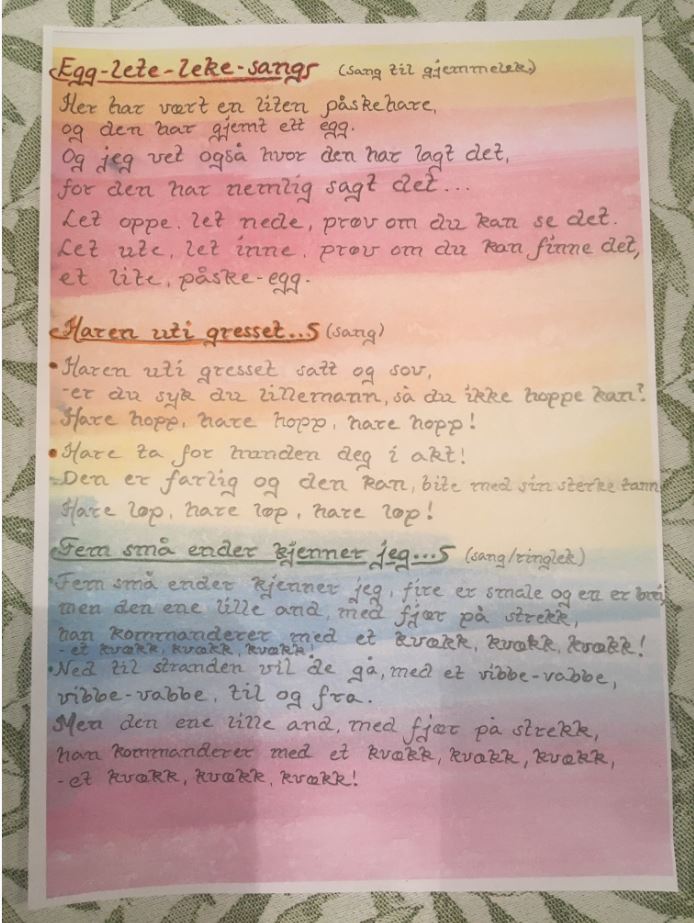 Egg-lete-leke-sangs (sang til gjemmelek)
Her har vært en liten påskehare,
og den har gjemt ett egg.
Og jeg vet også hvor den har lagt det,
for den har nemlig sagt det...
Let oppe, let nede, prøv om du kan se det.
Let ute, let inne, prøv om du kan finne det,
et lite, påske-egg.
Haren uti gresset...S (sang)
• Haren uti gresset satt og sov,
-er du syk du lillemann, så du ikke hoppe kan?
Hare hopp, hare hopp, hare hopp!
• Hare ta for hunden deg i akt!
Den er farlig og den kan, bite med sin sterke tann
Hare løp, hare løp, hare løp!
Fem små ender kjenner jeg...S (sang/ringlek)
• Fem små ender kjenner jeg, fire er smale og en er
men den ene lille and, med fjær på strekk,
han kommanderer med et kvækk, kvækk, kvækk!
- et kvækk, kvækk, kvækk!
• Ned til stranden vil de gå, med et vibbe-vabbe,
vibbe-vabbe, til og fra.
Men den ene lille and, med fjær på strekk,
han kommanderer med et kvækk, kvækk, kvækk,
- et kvækk, kvækk, kvækk!